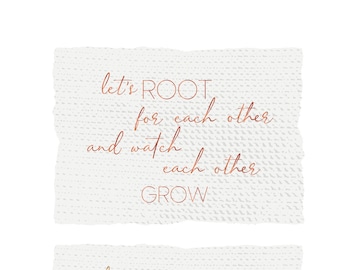 let's ROOT
for each other
and watch
each other
GROW